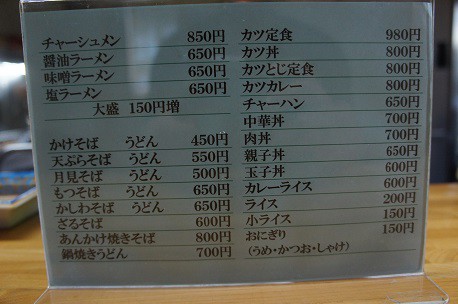 チャーシュメン 850円
醤油ラーメン 650円
味噌ラーメン 650円
塩ラーメン 650円
大盛 150円増
かけそば うどん 450円
天ぷらそば うどん 550円
月見そば うどん 500円
もつそば うどん 650円
かしわそば うどん 650円
ざるそば 600円
あんかけ焼きそば 800円
鍋焼きうどん 700円
カツ定食 980円
カツ丼 800円
カツとじ定食 800円
カツカレー 800円
チャーハン 650円
中華丼 700円
肉丼 700円
親子丼 650円
玉子丼 600円
カレーライス 600円
ライス 200円
小ライス 150円
おにぎり 150円
(うめ・かつお・しゃけ)